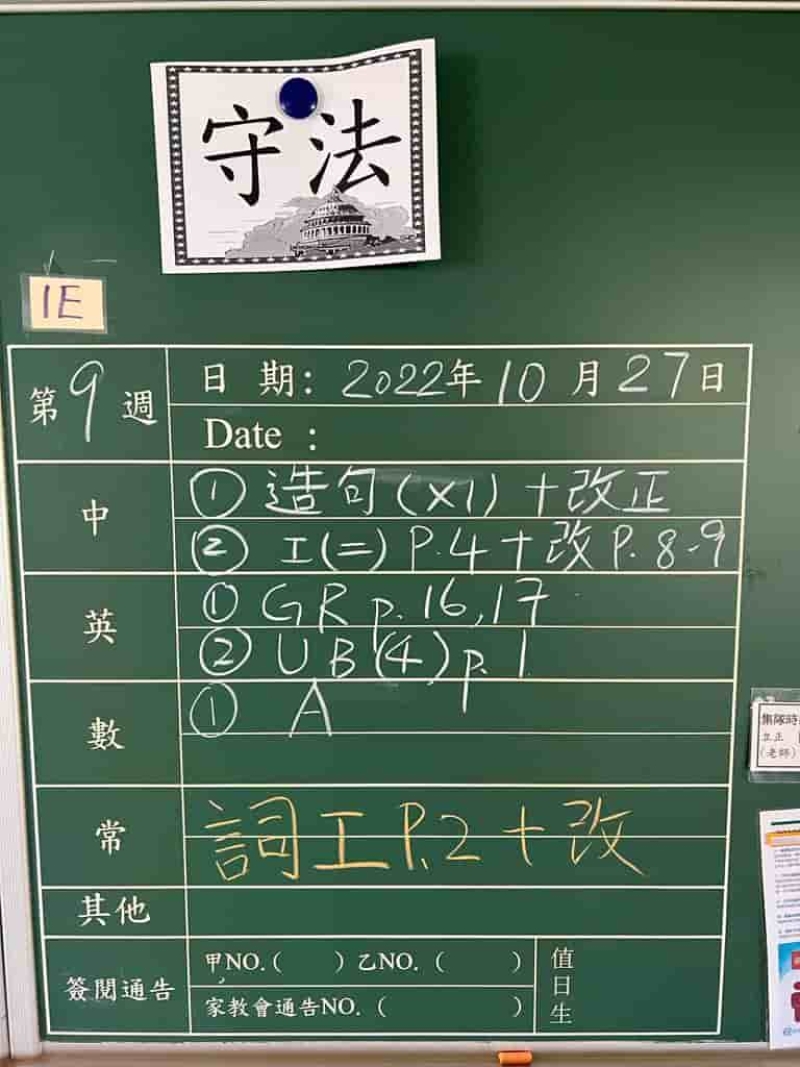 守法
1E
第9週
日 期: 2022年10月27日
Date :
中
① 造句(×1)+改正
② 工(二) P.4+改 P.8-9
英
① GR p.16,17
② UB(4) p.1
數
① A
常
詞工 P.2+改
其他
簽閱通告
甲NO.( ) 乙NO.( )
家教會通告NO.( )
值日生
集隊時
立正
(老師)